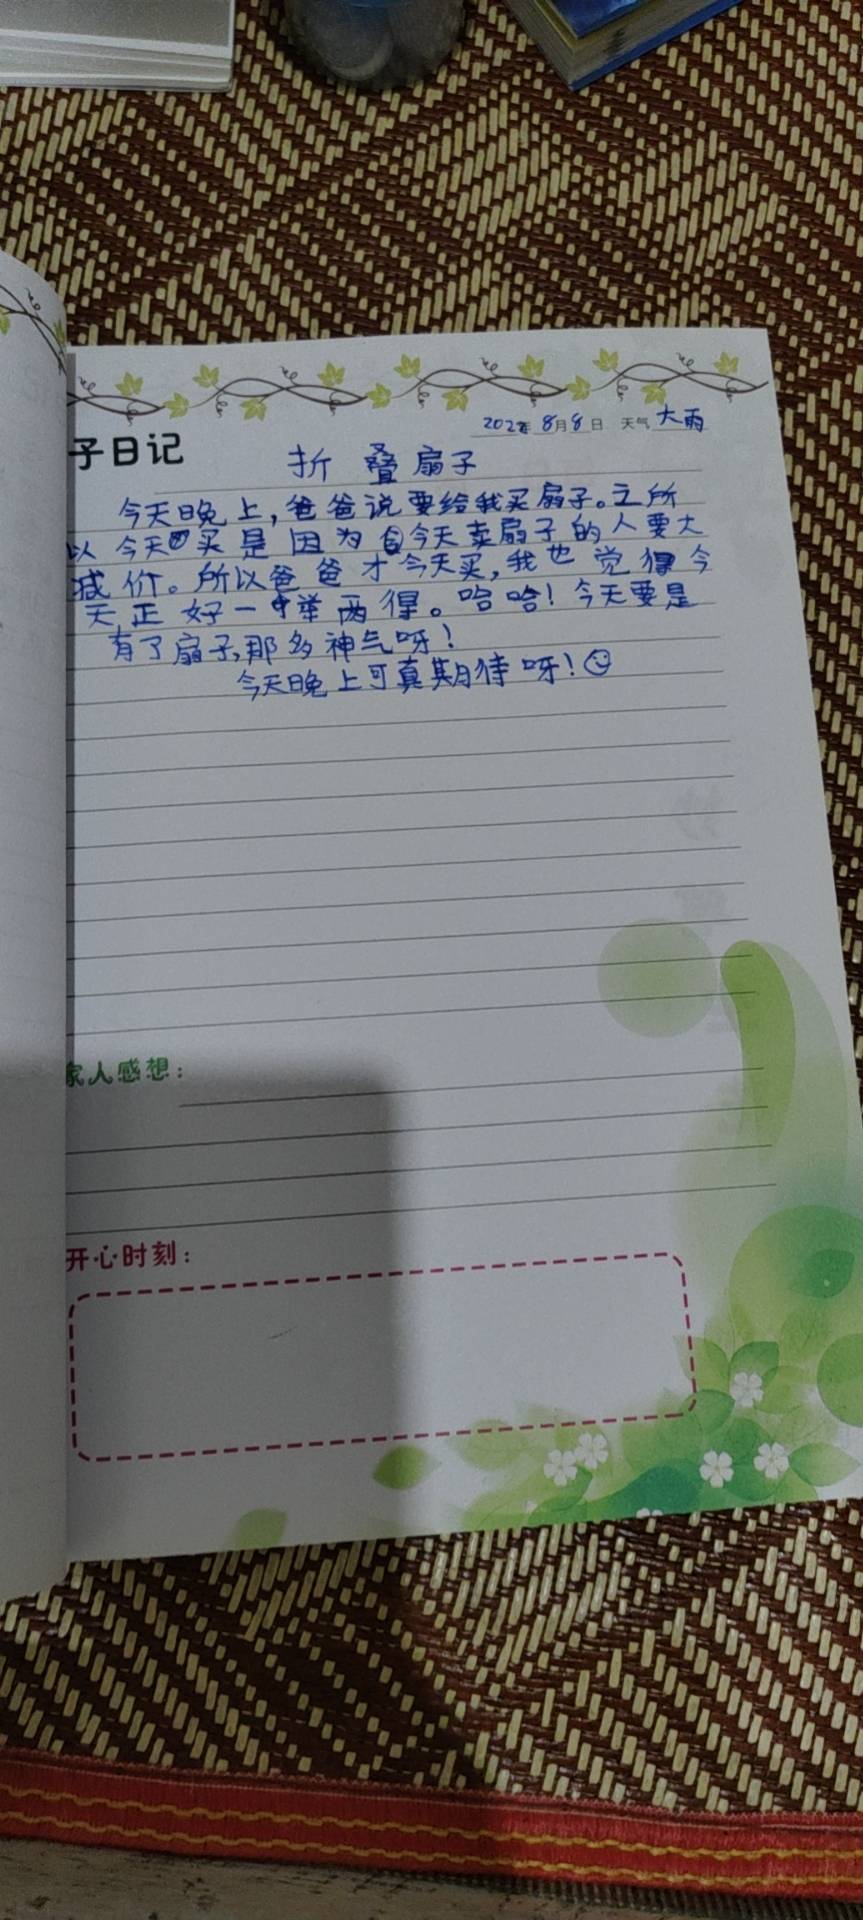 2022年 8月8日 天气 大雨
子日记
折叠扇子
今天晚上，爸爸说要给我买扇子。之所
以今天买是因为今天卖扇子的人要大
减价。所以爸爸才今天买，我也觉得今
天正好一举两得。哈哈！今天要是
有了扇子，那多神气呀！
今天晚上可真期待呀！
家人感想：
开心时刻：